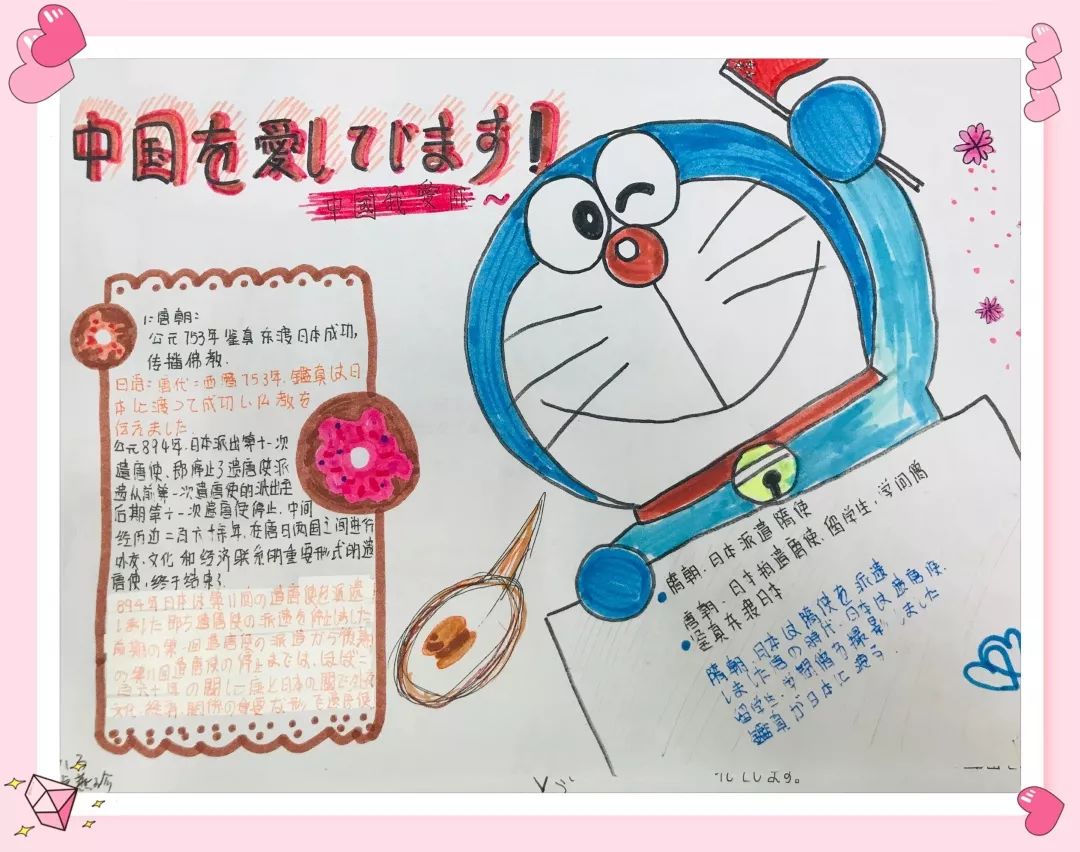 中国を愛してじます!
中國我愛
1:唐朝:
公元753年鉴真东渡日本成功,
传播佛教.
日语:唐代:西暦753年.鑑真は日
本に渡って成功し仏教を
伝えました
公元894年.日本派出第十一次
遣唐使、却停止了遣唐使派
遣从前第一次遣唐使的派出至
后期第十一次遣唐使停止.中间
经历边二百六十年,在唐日两国之间进行
外交.文化 和经济联系的重要形式的遣
唐使,终于结束了
894年日本は第11回の遣唐使を派遣
しました却ち遣唐使の派遣を停止しました
前期の第一回遣唐使の派遣から後期
の第11回遣唐使の停止までは、ほぼ二
百六十年の間に唐と日本の間で外交
文化.経済.関係の重要な形で遣唐使
隋朝.日本派遣隋使
唐朝.日本构遣唐使 留学生,学问僧
鉴真东渡日本
隋朝.日本は隋使を派遣
しました唐の時代.日本は遣唐使.
留学生.学問僧を撮影しました
鑑真が日本に渡る